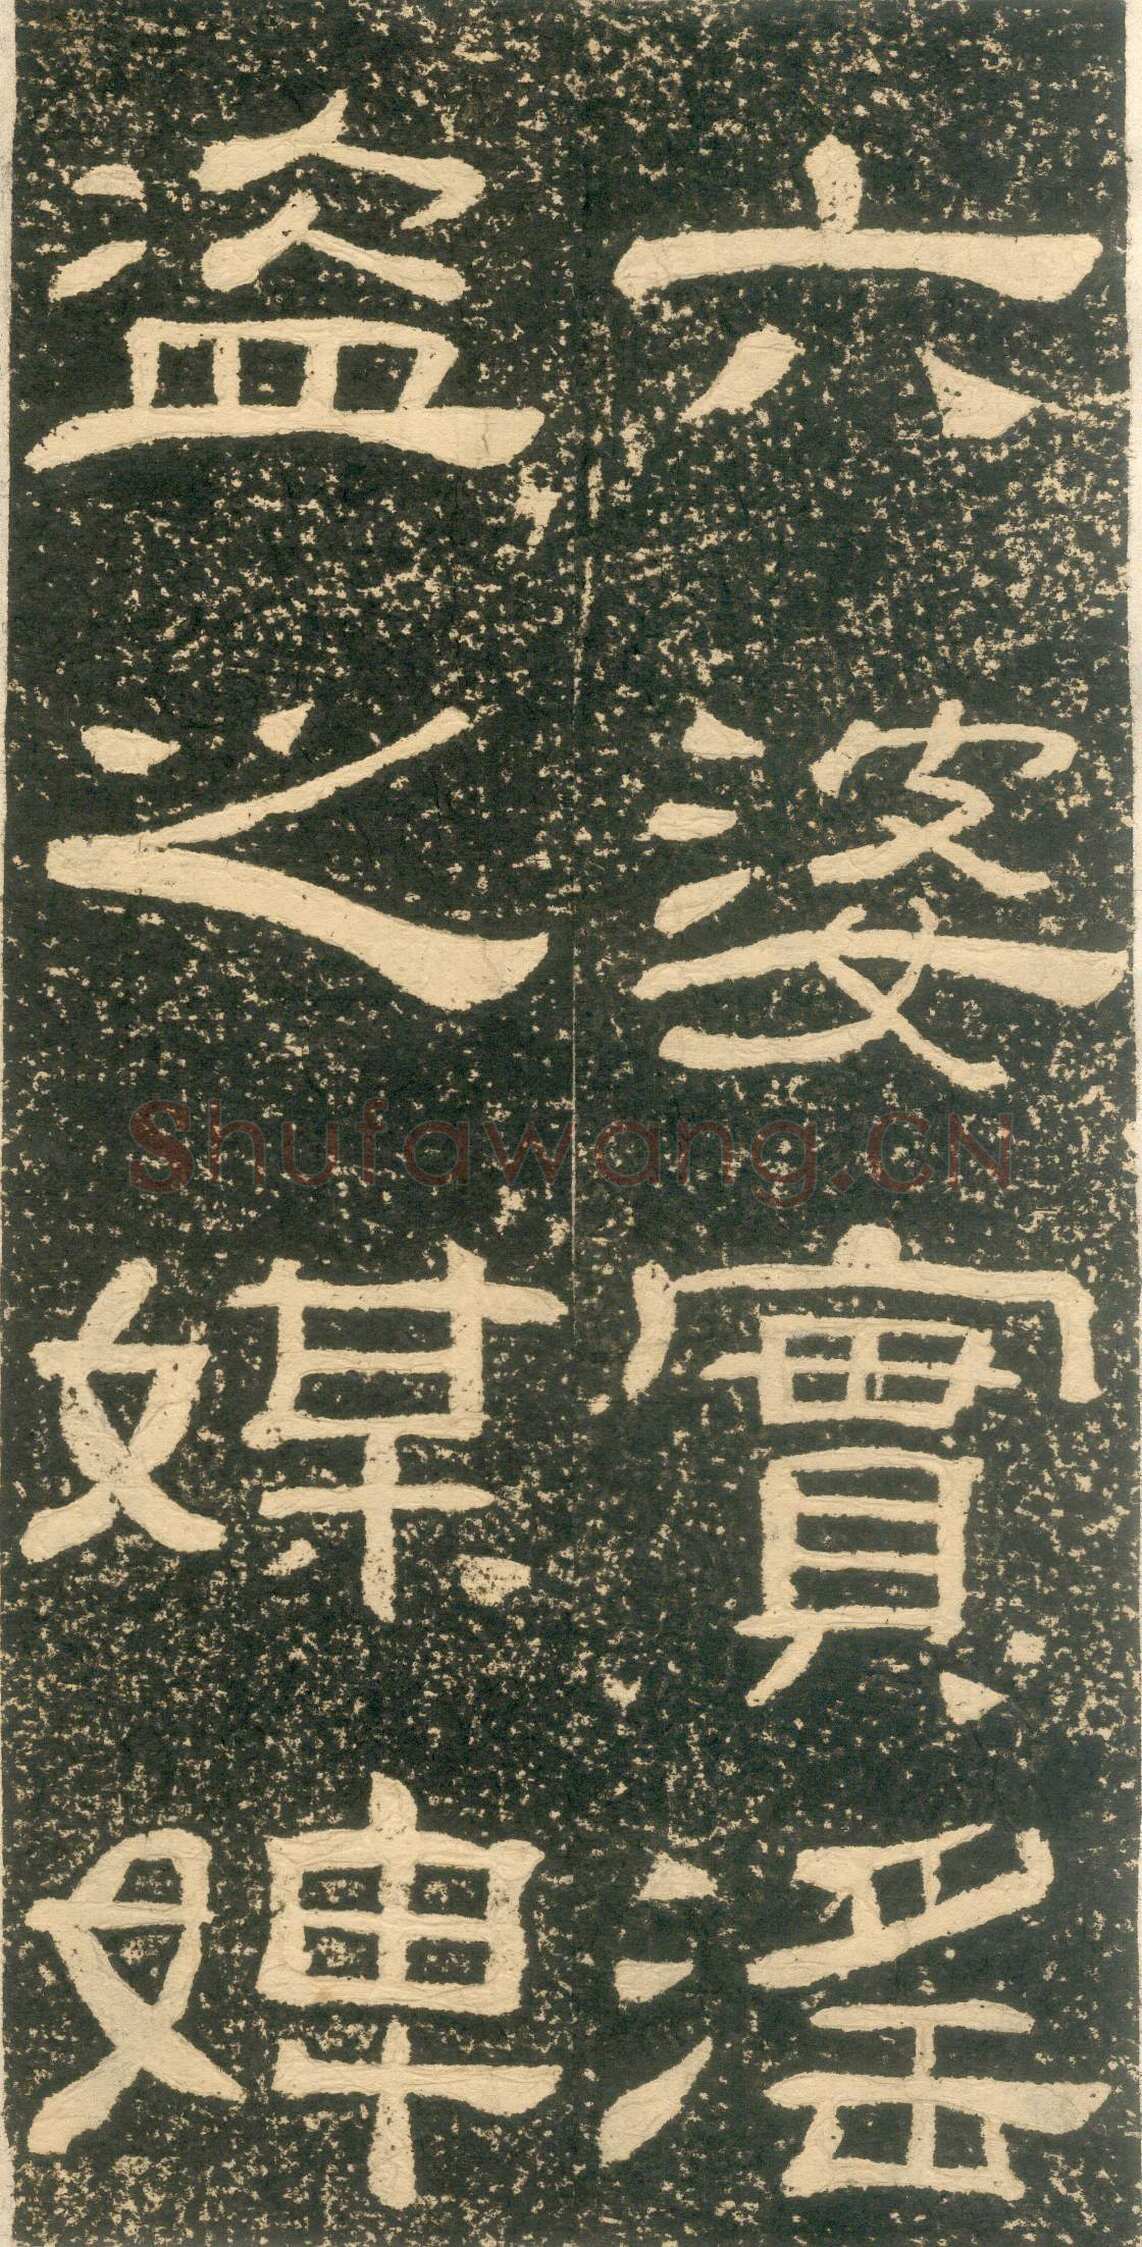 六婆實淫
盜之媒婢
Shufawang.CN